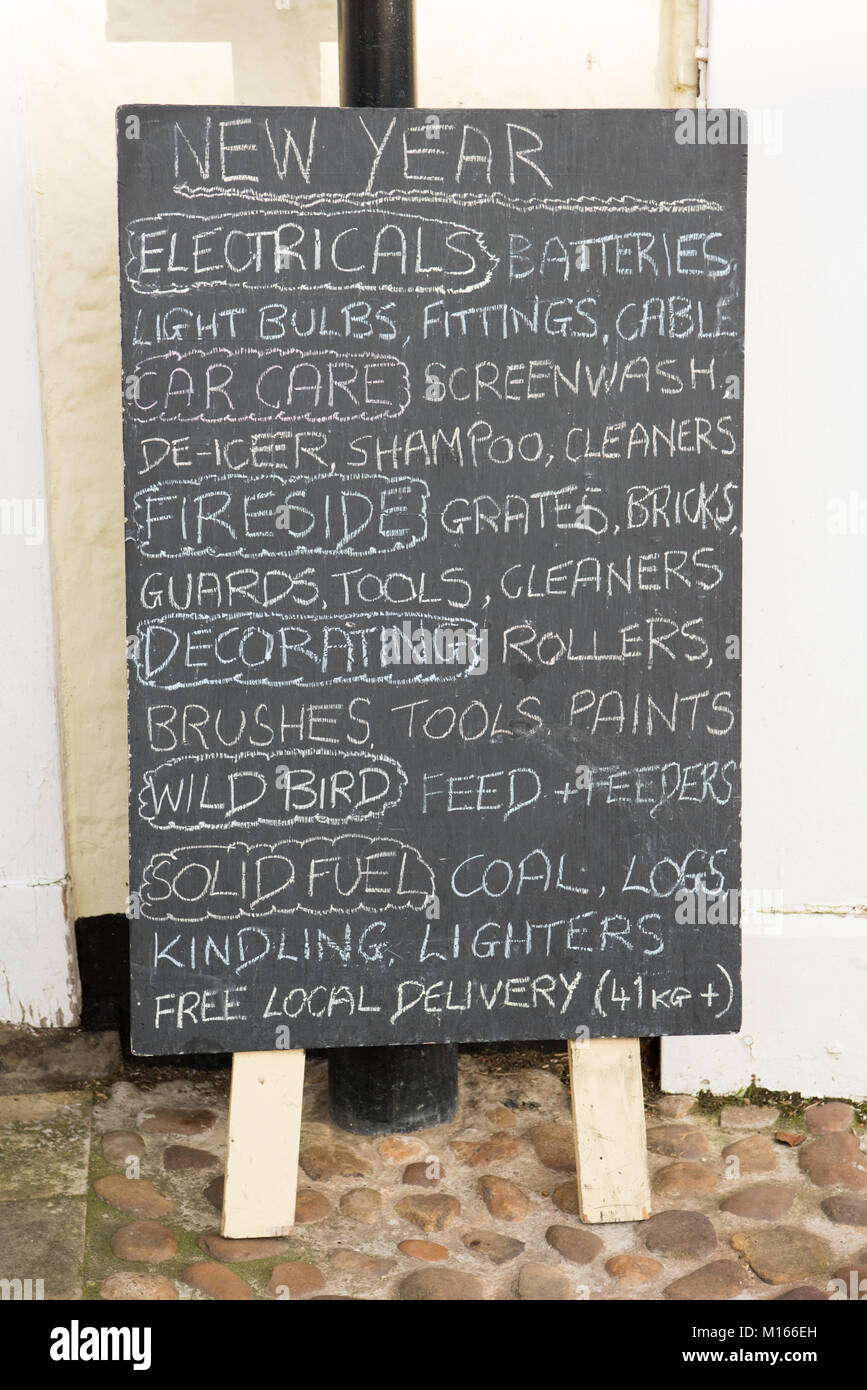 NEW YEAR
ELECTRICALS BATTERIES,
LIGHT BULBS, FITTINGS, CABLE
CAR CARE SCREENWASH,
DE-ICER, SHAMPOO, CLEANERS
FIRESIDE GRATES, BRICKS,
GUARDS, TOOLS, CLEANERS
DECORATING ROLLERS,
BRUSHES, TOOLS, PAINTS
WILD BIRD FEED + FEEDERS
SOLID FUEL COAL, LOGS,
KINDLING, LIGHTERS
FREE LOCAL DELIVERY (41KG+)
alamy
Image ID: M166EH
www.alamy.com